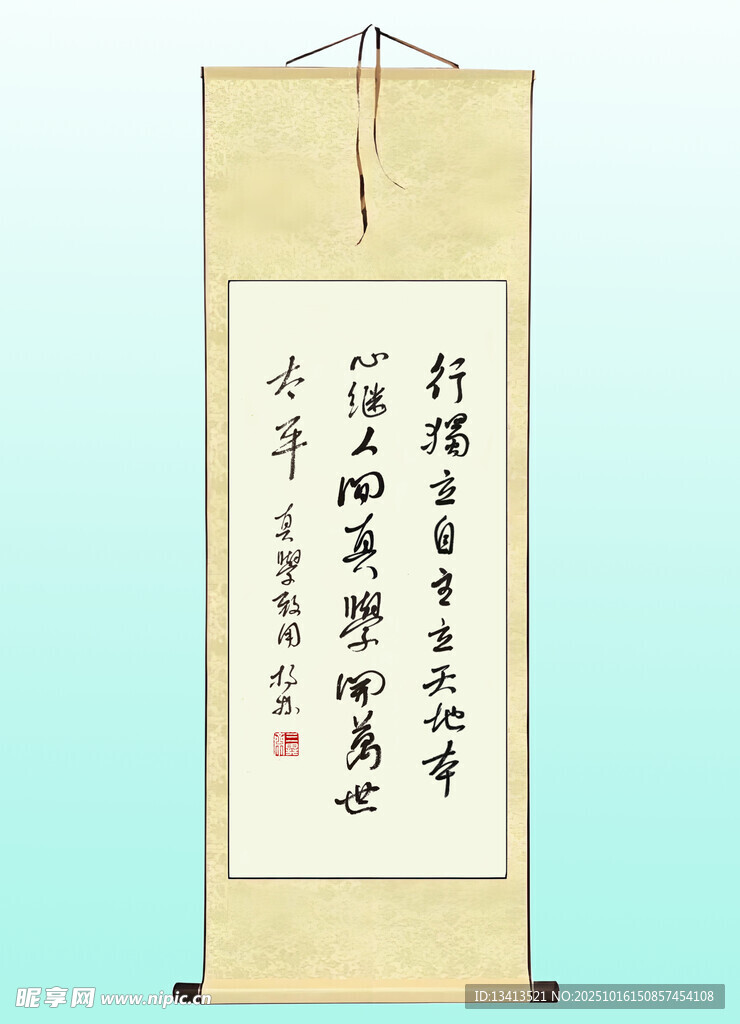 行獨立自主立天地本
心继人间真學開萬世
太平 真學致用
昵享网 www.nipic.cn
ID:13413521 NO:20251016150857454108